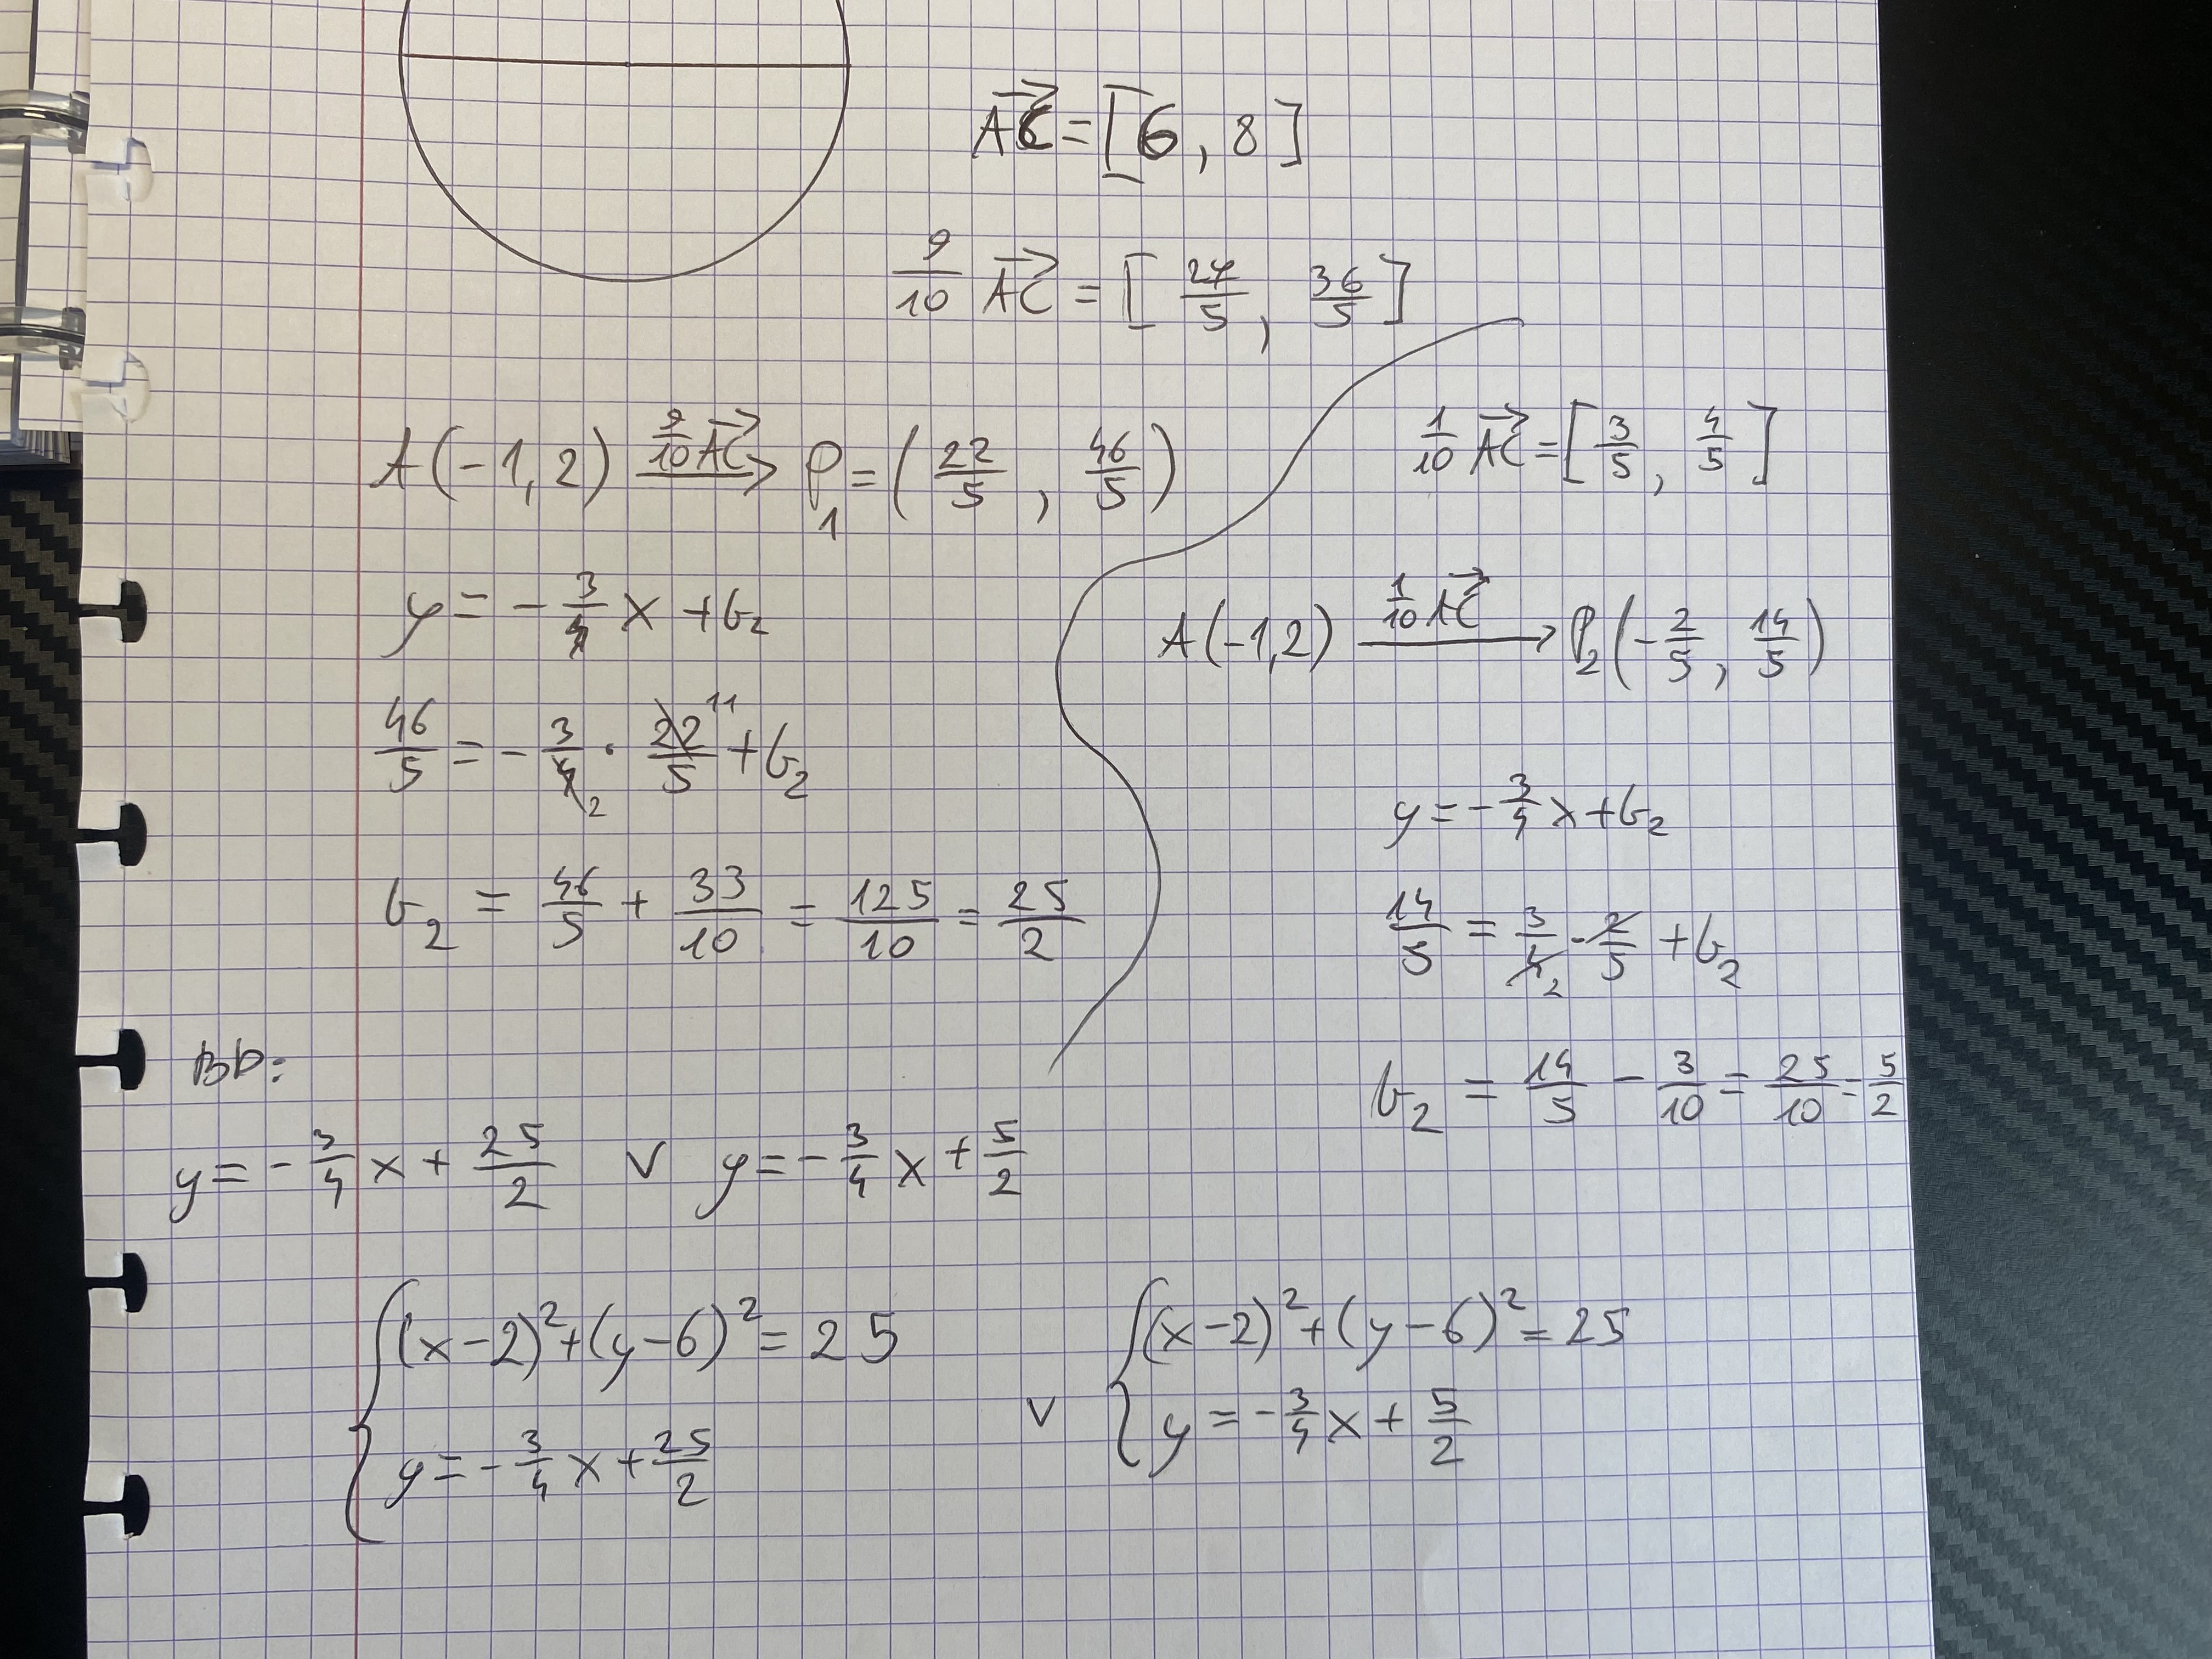 AC⃗ = [6, 8]
9/10 AC⃗ = [27/5, 36/5]
A(-1,2) 9/10 AC⃗ → P₁ = (22/5, 46/5)
y = -3/4 x + b₂
46/5 = -3/4₂ · 22¹¹/5 + b₂
b₂ = 46/5 + 33/10 = 125/10 = 25/2
1/10 AC⃗ = [3/5, 4/5]
A(-1,2) 1/10 AC⃗ → P₂(-2/5, 14/5)
y = -3/4 x + b₂
14/5 = 3/4₂ · 2/5 + b₂
b₂ = 14/5 - 3/10 = 25/10 = 5/2
BD:
y = -3/4 x + 25/2 ∨ y = -3/4 x + 5/2
{ (x-2)² + (y-6)² = 25
y = -3/4 x + 25/2
∨
{ (x-2)² + (y-6)² = 25
y = -3/4 x + 5/2